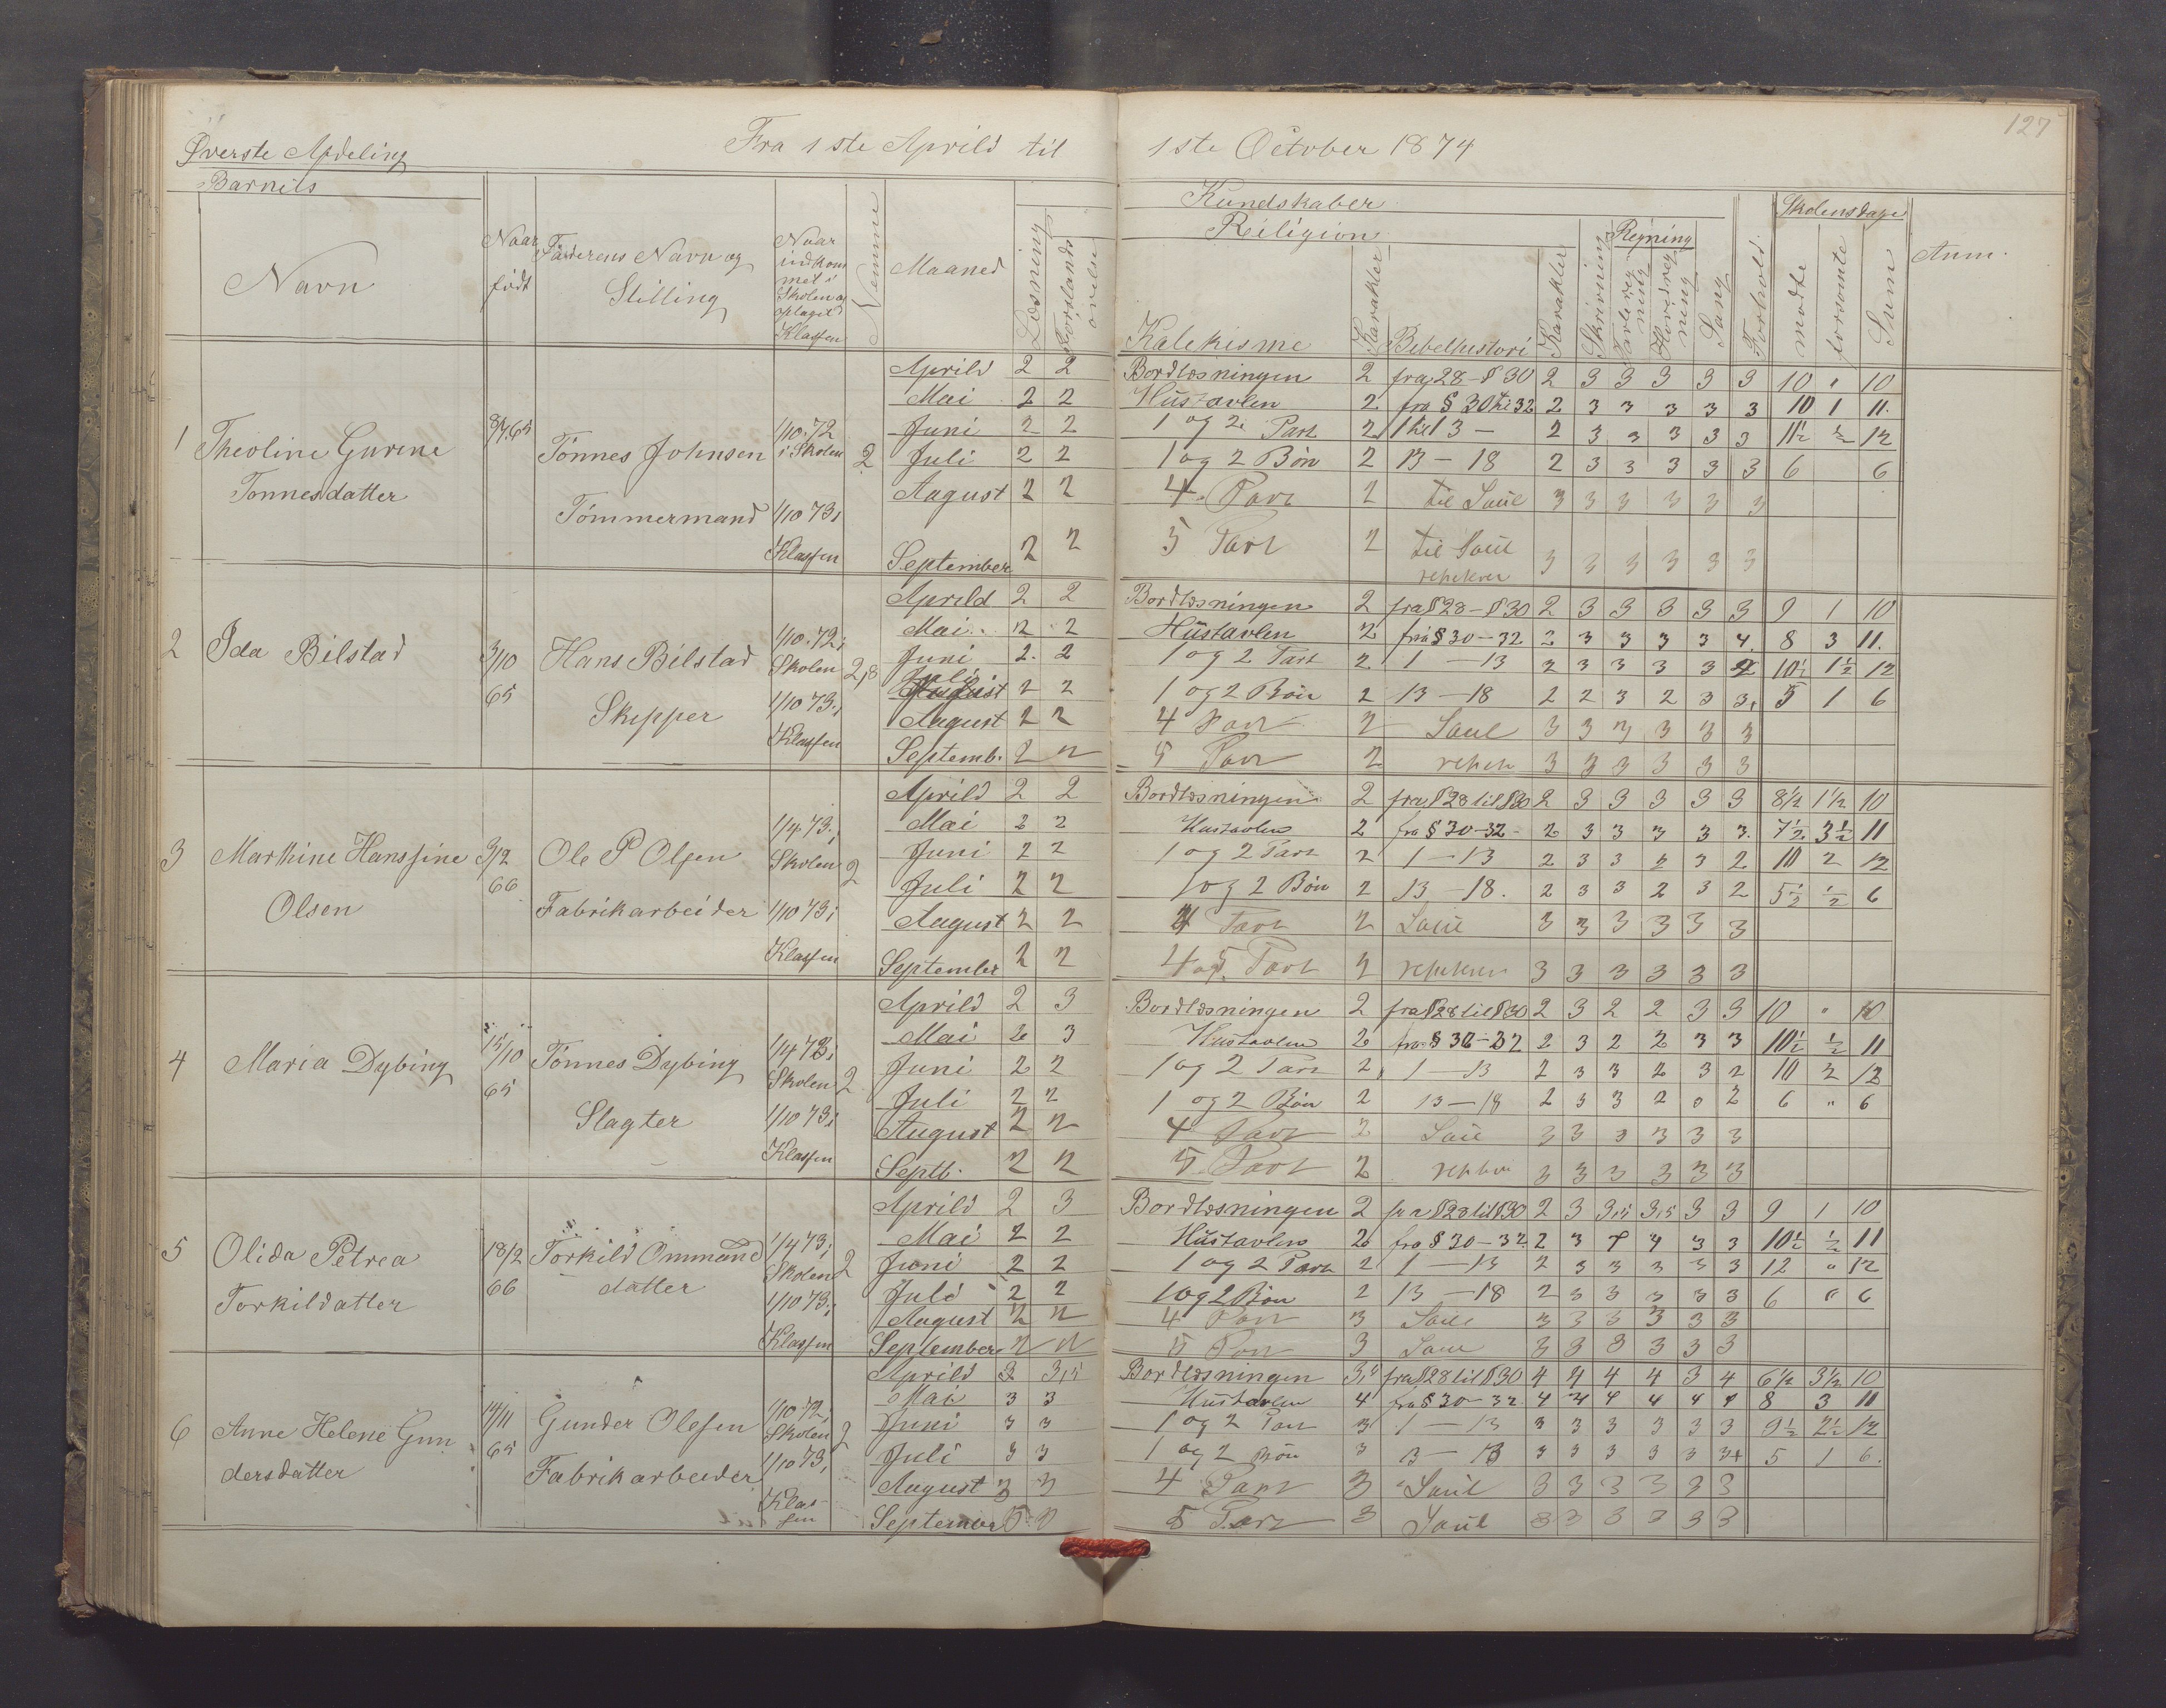 127
Øverste Afdeling Fra 1ste April til 1ste October 1874
Barnets Kundskaber Skolensdage
Religion Regning
Navn Naar født Faderens Navn og Stilling Naar indkommet i Skolen og optaget i Klassen Nemme Maaned Læsning Forstandsøvelse Katekisme Karakter Bibelhistori Karakter Skrivning Tavleregning Hovedregning Sang Forhold mødte forsømte Sum Anm.
1 Theoline Gurine Tonnesdatter
Tönnes Johnsen Tömmermand
1/10.72 i Skolen 1/10 73 i Klassen 2
April 2 2 Bordlæsningen 2 fra 28-§30 2 3 3 3 3 3 10 " 10
Mai 2 2 Hustavlen 2 fra § 30 til 32 2 3 3 3 3 3 10 1 11.
Juni 2 2 1 og 2 Part 2 1 til 13 - 2 3 3 3 3 3 11½ ½ 12
Juli 2 2 1 og 2 Bön 2 13-18 2 3 3 3 3 3 6 6
August 2 2 4. Part 2 til Saul 3 3 3 3 3 3
September 2 2 5 Part 2 til Saul 3 3 3 3 3 3
2 Ida Bilstad 3/10 65 Hans Bilstad Skipper
1/10.72 i Skolen 1/10 73 i Klassen 2,8
April 2 2 Bordlæsningen 2 fra §28-§30 2 3 3 3 3 3 9 1 10
Mai 2 2 Hustavlen 2 fra § 30-32 2 3 3 3 3 4. 8 3 11.
Juni 2 2 1 og 2 Part 2 1-13 2 3 3 3 3 2 10½ 1½ 12
Juli 2 2 1 og 2 Bön 2 13-18 2 2 3 2 3 3 5 1 6
August 2 2 4 Part 2 Saul 3 3 3 3 3 3
Septemb. 2 2 5 Part 2 3 3 3 3 3 3
3 Marthine Hansine Olsen 3/2 66 Ole P Olsen Fabrikarbeider
1/4 73 i Skolen 1/10 73 i Klassen 2
April 2 2 Bordlæsningen 2 fra §28 til §30 2 3 3 3 3 3 8½ 1½ 10
Mai 2 2 Hustavlen 2 fra § 30-32- 2 3 3 3 3 3. 7½ 3½ 11
Juni 2 2 1 og 2 Part 2 1-13 2 3 3 2 3 2 10 2 12
Juli 2 2 1 og 2 Bön 2 13-18. 2 3 3 2 3 2 5½ ½ 6
August 2 2 4 Part 2 Saul 3 3 3 3 3 3
September 2 2 4 og 5. Part 2 3 3 3 3 3 3
4 Maria Dybing 15/10 65 Tönnes Dybing Slagter
1/4 73 i Skolen 1/10 73 i Klassen 2
April 2 3 Bordlæsningen 2 fra §28 til §30 2 3 2 2 3 3 10 " 10
Mai 2 3 Hustavlen 2 fra § 30-32 2 3 2 2 3 3 10½ ½ 11
Juni 2 2 1 og 2 Part 2 1-13 2 3 3 2 3 2 10 2 12
Juli 2 2 1 og 2 Bön 2 13-18 2 3 3 2 3 2 6 " 6
August 2 2 4 Part 2 Saul 3 3 3 3 3 3
Septb. 2 2 5 Part 2 3 3 3 3 3 3
5 Olida Petrea Torkildatter 18/2 66 Torkild Ommund datter
1/4 73 i Skolen 1/10 73 i Klassen 2
April 2 3 Bordlæsningen 2 fra §28 til §30 2 3 3,5 3,5 3 3 9 1 10
Mai 2 2 Hustavlen 2 fra § 30-32. 2 3 3 3 3 10½ ½ 11
Juni 2 2 1 og 2 Part 2 1-13 2 3 3 3 3 3 12 " 12
Juli 2 2 1 og 2 Bön 2 13-18 2 3 3 3 3 3 6 " 6
August 2 2 4 Part 3 Saul 3 3 3 3 3 3
September 2 2 5 Part 3 Saul 3 3 3 3 3 3
6 Anne Helene Gundersdatter 14/11 65 Gunder Olesen Fabrikarbeider
1/10 72 i Skolen 1/10 73 i Klassen 2
April 3 3,5 Bordlæsningen 3,5 fra §28 til §30 4 4 4 4 3 4 6½ 3½ 10
Mai 3 3 Hustavlen 4 fra § 30-32. 4 4 4 4 4 4 8 3 11
Juni 3 3 1 og 2 Part 3 1-13 3 3 3 3 3 3 9½ 2½ 12
Juli 3 3 1 og 2 Bön 3 13-18 3 3 3 3 3 5 1 6.
August 3 3 4 Part 3 Saul 3 3 3 3 3 3
September 5 Part 3 Saul 3 3 3 3 3 3